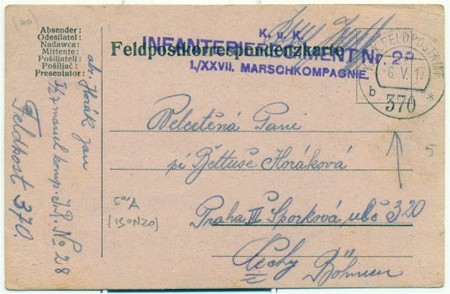 Absender:
Odesílatel:
Nadawca:
Mittente:
Pošiljatelj:
Pošiljač:
Presentator:
Feldpostkorrespondenzkarte
K. u. K.
INFANTERIEREGIMENT Nr. 28
I./XXVII. MARSCHKOMPAGNIE
6. V. 17
b
370
Horák Jan
No 28
Feldpost 370.
Velectěná Paní
pí Bettuše Horáková
Praha III Šporková ulč 320
Čechy Böhmen
5.A/A
(ISONZO)